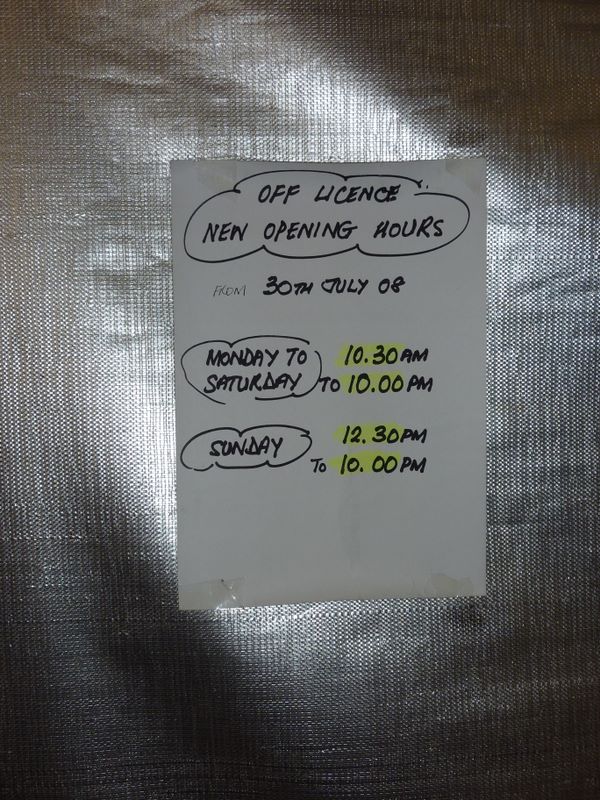 OFF LICENCE
NEW OPENING HOURS
FROM 30TH JULY 08
MONDAY TO 10.30AM
SATURDAY TO 10.00PM
SUNDAY 12.30PM
TO 10.00PM